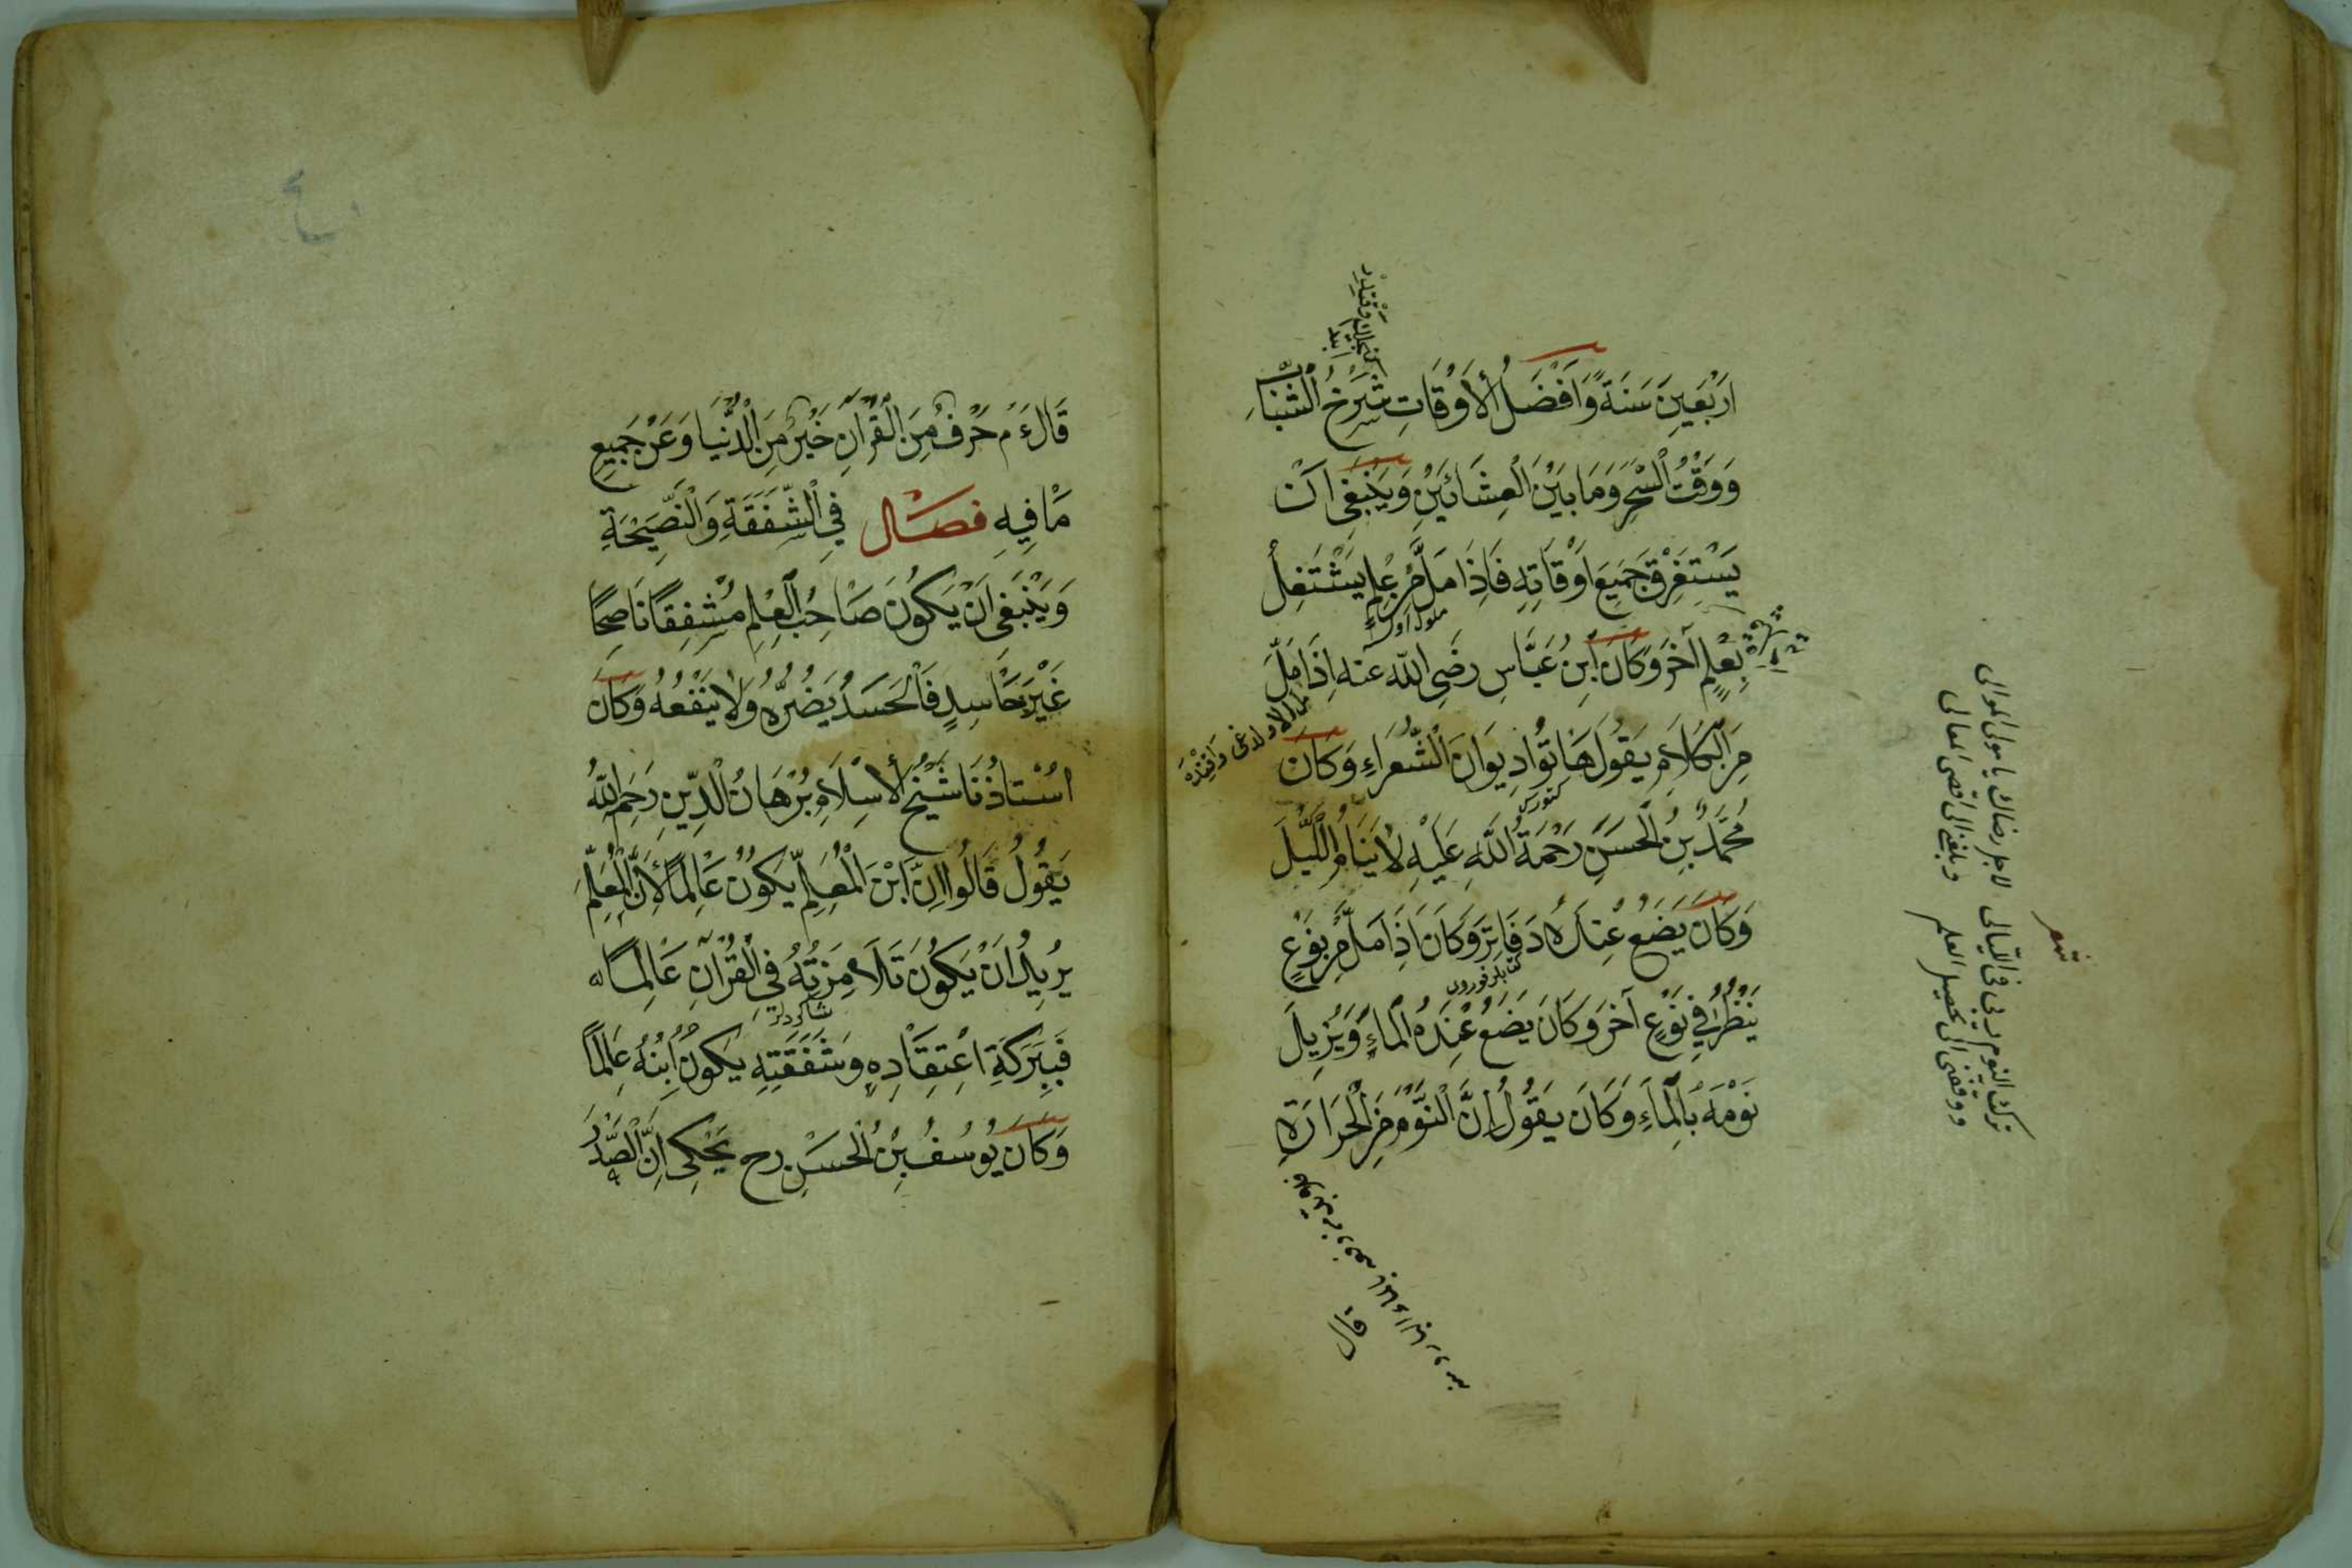 اَرْبَعِينَ سَنَةً وَاَفْضَلُ الْاَوْقَاتِ شَرْخُ الشَّبَابِ
وَوَقْتُ السَّحَرِ وَمَا بَيْنَ الْعِشَائَيْنِ وَيَنْبَغِى اَنْ
يَسْتَغْرِقَ جَمِيعَ اَوْقَاتِهِ فَاِذَا مَلَّ مِنْ عِلْمٍ يَشْتَغِلُ
بِعِلْمٍ آخَرَ وَكَانَ ابْنُ عَبَّاسٍ رَضِىَ اللّٰه عنه اِذَا مَلَّ
مِنَ الْكَلَامِ يَقُولُ هَاتُوا دِيوَانَ الشُّعَرَاءِ وَكَانَ
مُحَمَّدُ بْنُ الْحَسَنِ رَحْمَةُ اللّٰهِ عَلَيْهِ لَا يَنَامُ اللَّيْلَ
وَكَانَ يَضَعُ عِنْدَهُ دَفَاتِرَ وَكَانَ اِذَا مَلَّ مِنْ نَوْعٍ
يَنْظُرُ فِي نَوْعٍ آخَرَ وَكَانَ يَضَعُ عِنْدَهُ الْمَاءَ وَيُزِيلُ
نَوْمَهُ بِالْمَاءِ وَكَانَ يَقُولُ اِنَّ النَّوْمَ مِنَ الْحَرَارَةِ
قال
شعر
ترك النوم ربى فى الليالى لاجل رضاك يا مولى الموالى
ووفقنى الى تحصيل العلم وبلغنى الى اقصى المعالى
قَالَ ءَم حَرْفٌ مِنَ الْقُرْاٰنِ خَيْرٌ مِنَ الدُّنْيَا وَعَنْ جَمِيعِ
مَا فِيهِ فصل فِي الشَّفَقَةِ وَالنَّصِيحَةِ
وَيَنْبَغِى اَنْ يَكُونَ صَاحِبُ الْعِلْمِ مُشْفِقًا نَاصِحًا
غَيْرَ حَاسِدٍ فَالْحَسَدُ يَضُرُّهُ وَلَا يَنْفَعُهُ وَكَانَ
اُسْتَاذُنَا شَيْخُ الْاِسْلَامِ بُرْهَانُ الدِّينِ رَحِمَهُ اللّٰهُ
يَقُولُ قَالُوا اِنَّ ابْنَ الْمُعَلِّمِ يَكُونُ عَالِمًا لِاَنَّ الْمُعَلِّمَ
يُرِيدُ اَنْ يَكُونَ تَلَامِزَتُهُ فِي الْقُرْآنِ عَالِمًا
شاكردلر
فَبِبَرَكَةِ اعْتِقَادِهِ وَشَفَقَتِهِ يَكُونُ ابْنُهُ عَالِمًا
وَكَانَ يُوسُفُ بْنُ الْحَسَنِ رح يَحْكِى اِنَّ الصَّدْرَ